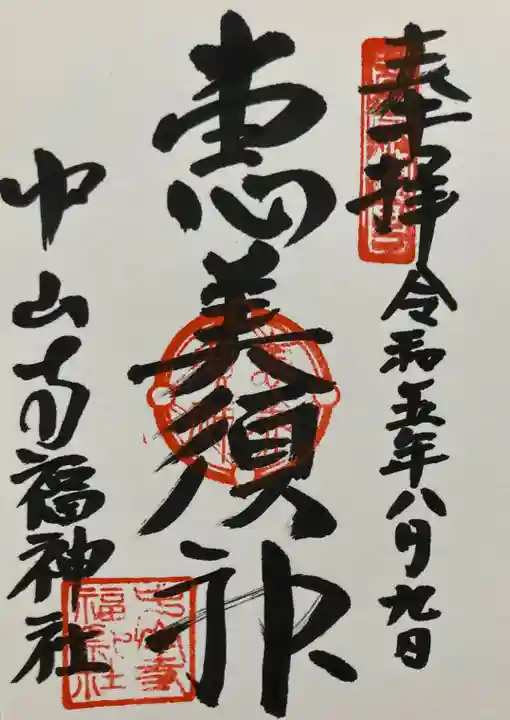 奉拝
令和五年八月九日
恵美須神
中山寿福神社